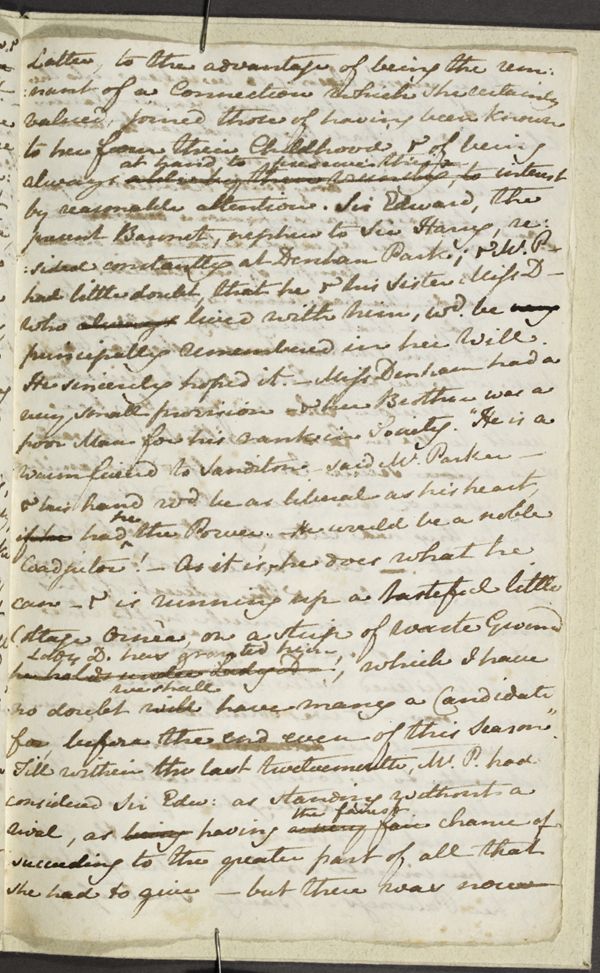 Latter, to the advantage of being the rem:
:nant of a Connection which she certainly
valued, joined those of having been known
to her from their Childhood, & of being
at hand to preserve their
always to interest
by reasonable attention. Sir Edward, the
present Baronet, nephew to Sir Harry, re:
:sided constantly at Denham Park; & Mr. P—
had little doubt, that he & his Sister Miss D—
who always lived with him, wd be very
principally remembered in her Will.
He sincerely hoped it. — Miss Denham had a
very small provision — & her Brother was a
poor Man for his rank in Society. "He is a
warm friend to Sanditon — said Mr. Parker —
& his hand wd be as liberal as his heart,
he
if he had the Power. — He would be a noble
Coadjutor! — As it is, he does what he
can — & is running up a tasteful little
Cottage Ornèe, on a strip of waste Ground
Lady D. has granted him,
he holds under Lady D—, which I have
we shall
no doubt will have many a Candidate
for before the end even of this Season."
Till within the last twelvemonth, Mr. P. had
considered Sir Edw: as standing without a
the fairest
rival, as being having fair chance of
succeeding to the greater part of all that
she had to give — but there was now